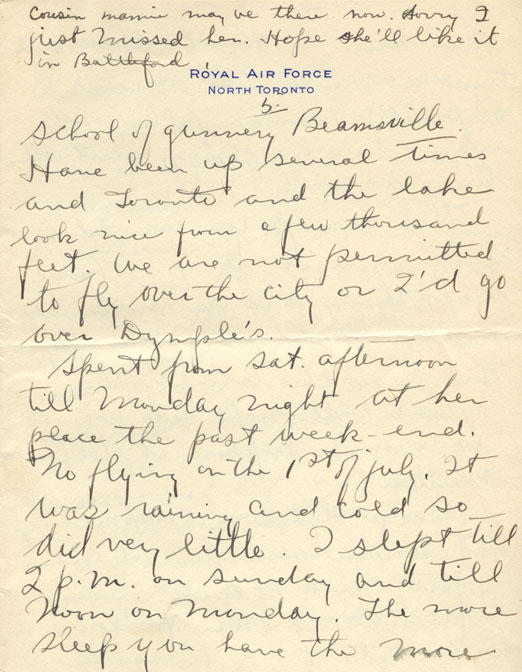 Cousin mamie may be there now. Sorry I
just missed her. Hope she'll like it
in Battleford
ROYAL AIR FORCE
NORTH TORONTO
5.
School of gunnery Beamsville.
Have been up several times
and Toronto and the lake
look nice from a few thousand
feet. We are not permitted
to fly over the city or I'd go
over Dymple's.
Spent from Sat. afternoon
till Monday night at her
place the past week-end.
No flying on the 1st of July. It
was raining and cold so
did very little. I slept till
2 p.m. on Sunday and till
Noon on Monday. The more
sleep you have the more